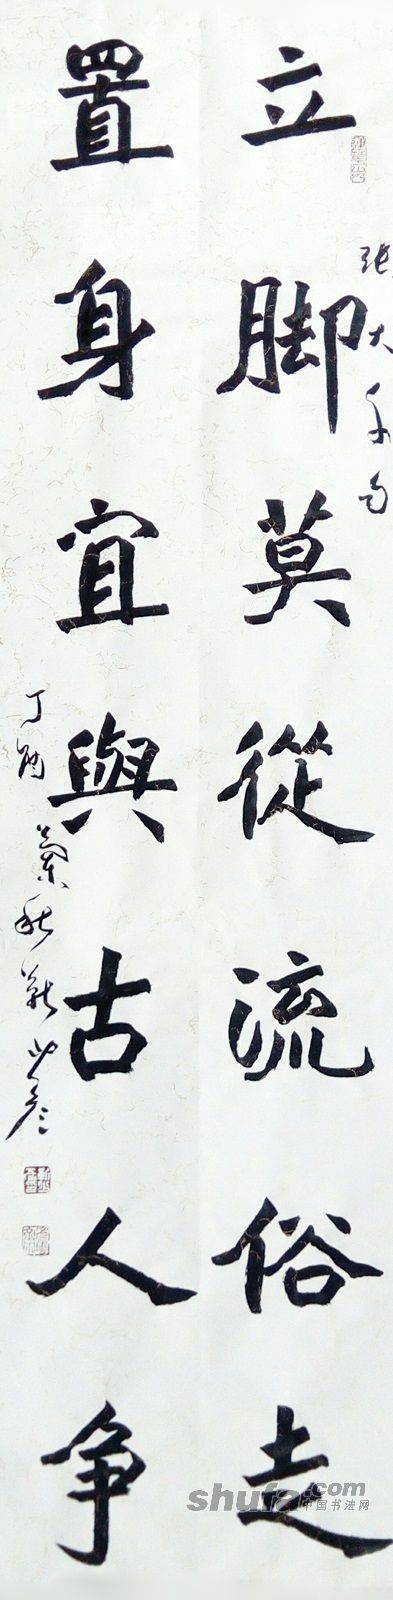 立腳莫從流俗走
張大千句
置身宜與古人争
丁酉蘭秋靳必彥
shufa.com
中国书法网